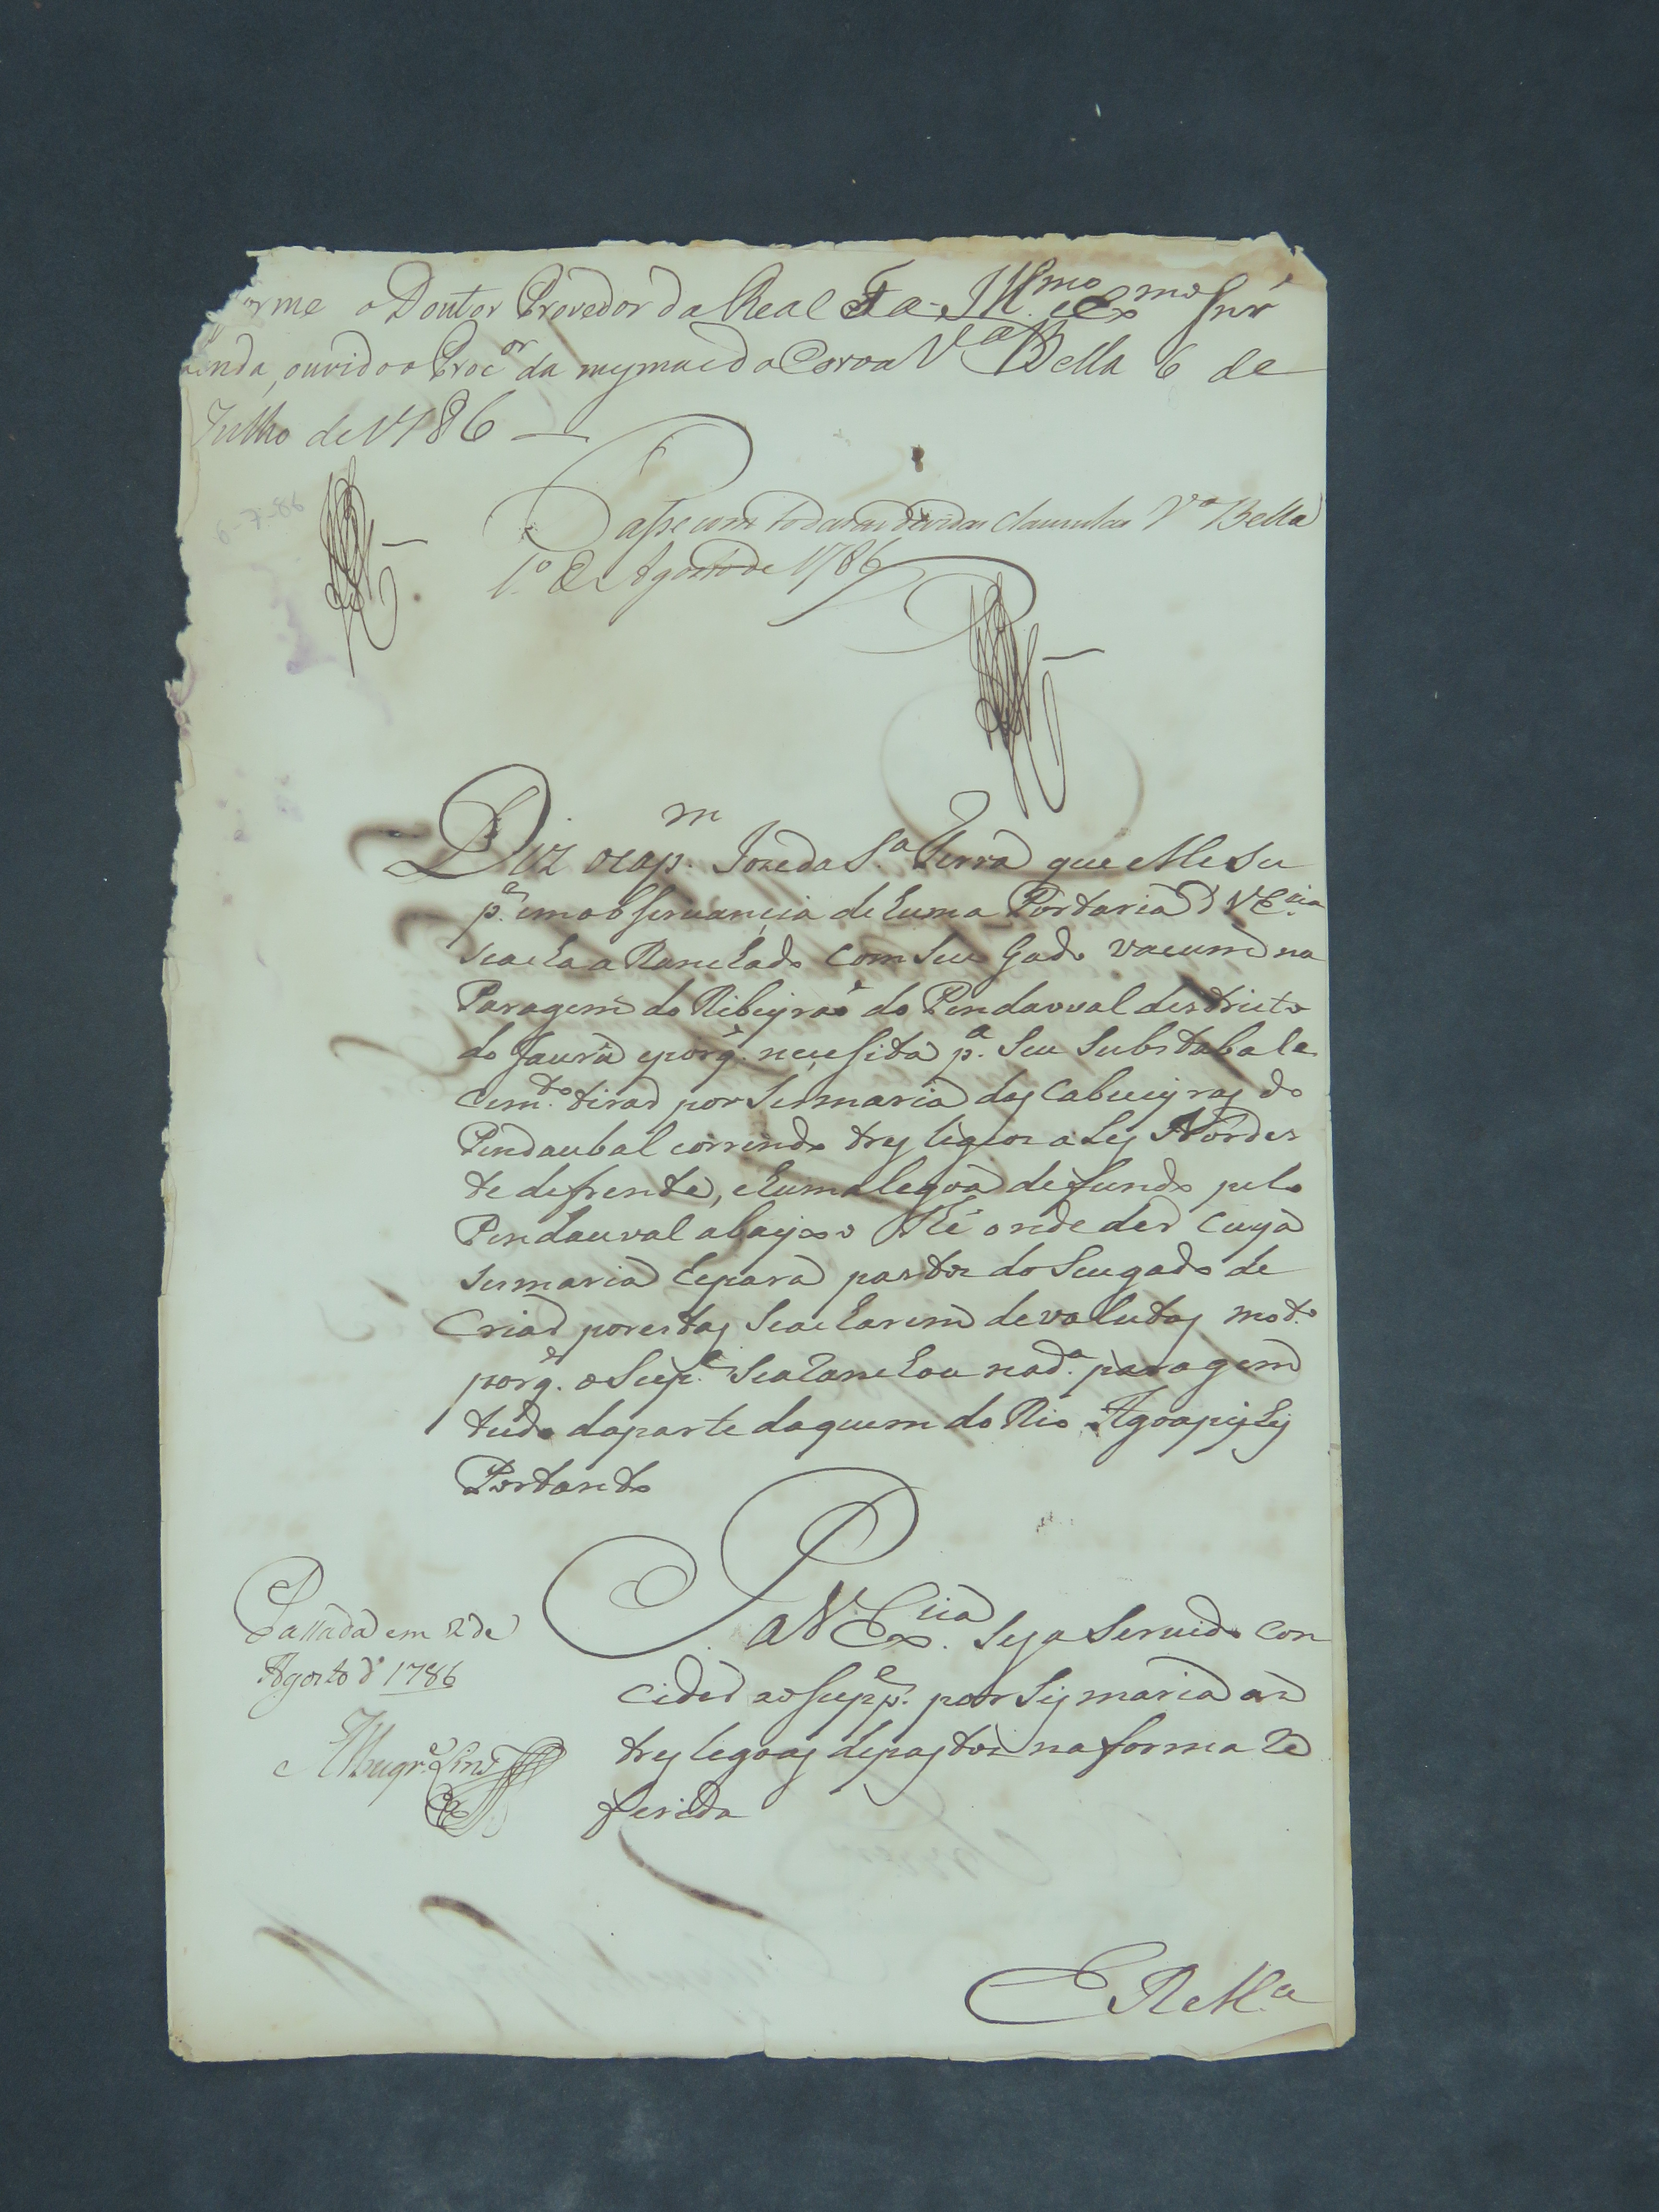 orme o Doutor Provedor da Real Fa- Ill.mo e Ex.mo Snr
enda, ouvido o Proc.or da mesma e da Coroa V.a Bella 6 de
Julho de 1786
6-7-86
Passe com todas as devidas clausulas V.a Bella
1.º de Agosto de 1786
Diz o cap.m Joze da S.a Terra que elle Su
p.e em observancia de huma Portaria d V Ex.cia
se acha aRanchado com seu gado vacum na
Paragem do Ribeyrao do Pindauval destricto
do Jauru e porq. necesita p.a seu substabale
cim.to tirar por sesmaria das cabeceyras do
Pindaubal correndo tres legoas a Les Nordes
te de frente, e huma legoa de fundo pelo
Pindauval abayxo the onde der cuya
sesmaria he para pastos do seu gado de
criar por estas se acharem devalutas mot.o
porq. o Sup.e se aRanchou na d.a paragem
tudo da parte daquem do Rio Agoapehy
Portanto
P a V. Ex.cia seja servido con
ceder ao supp.e por sismaria as
tres legoas de pastos na forma Re
ferida
Passada em 2 de
Agosto d 1786
E R M.ce